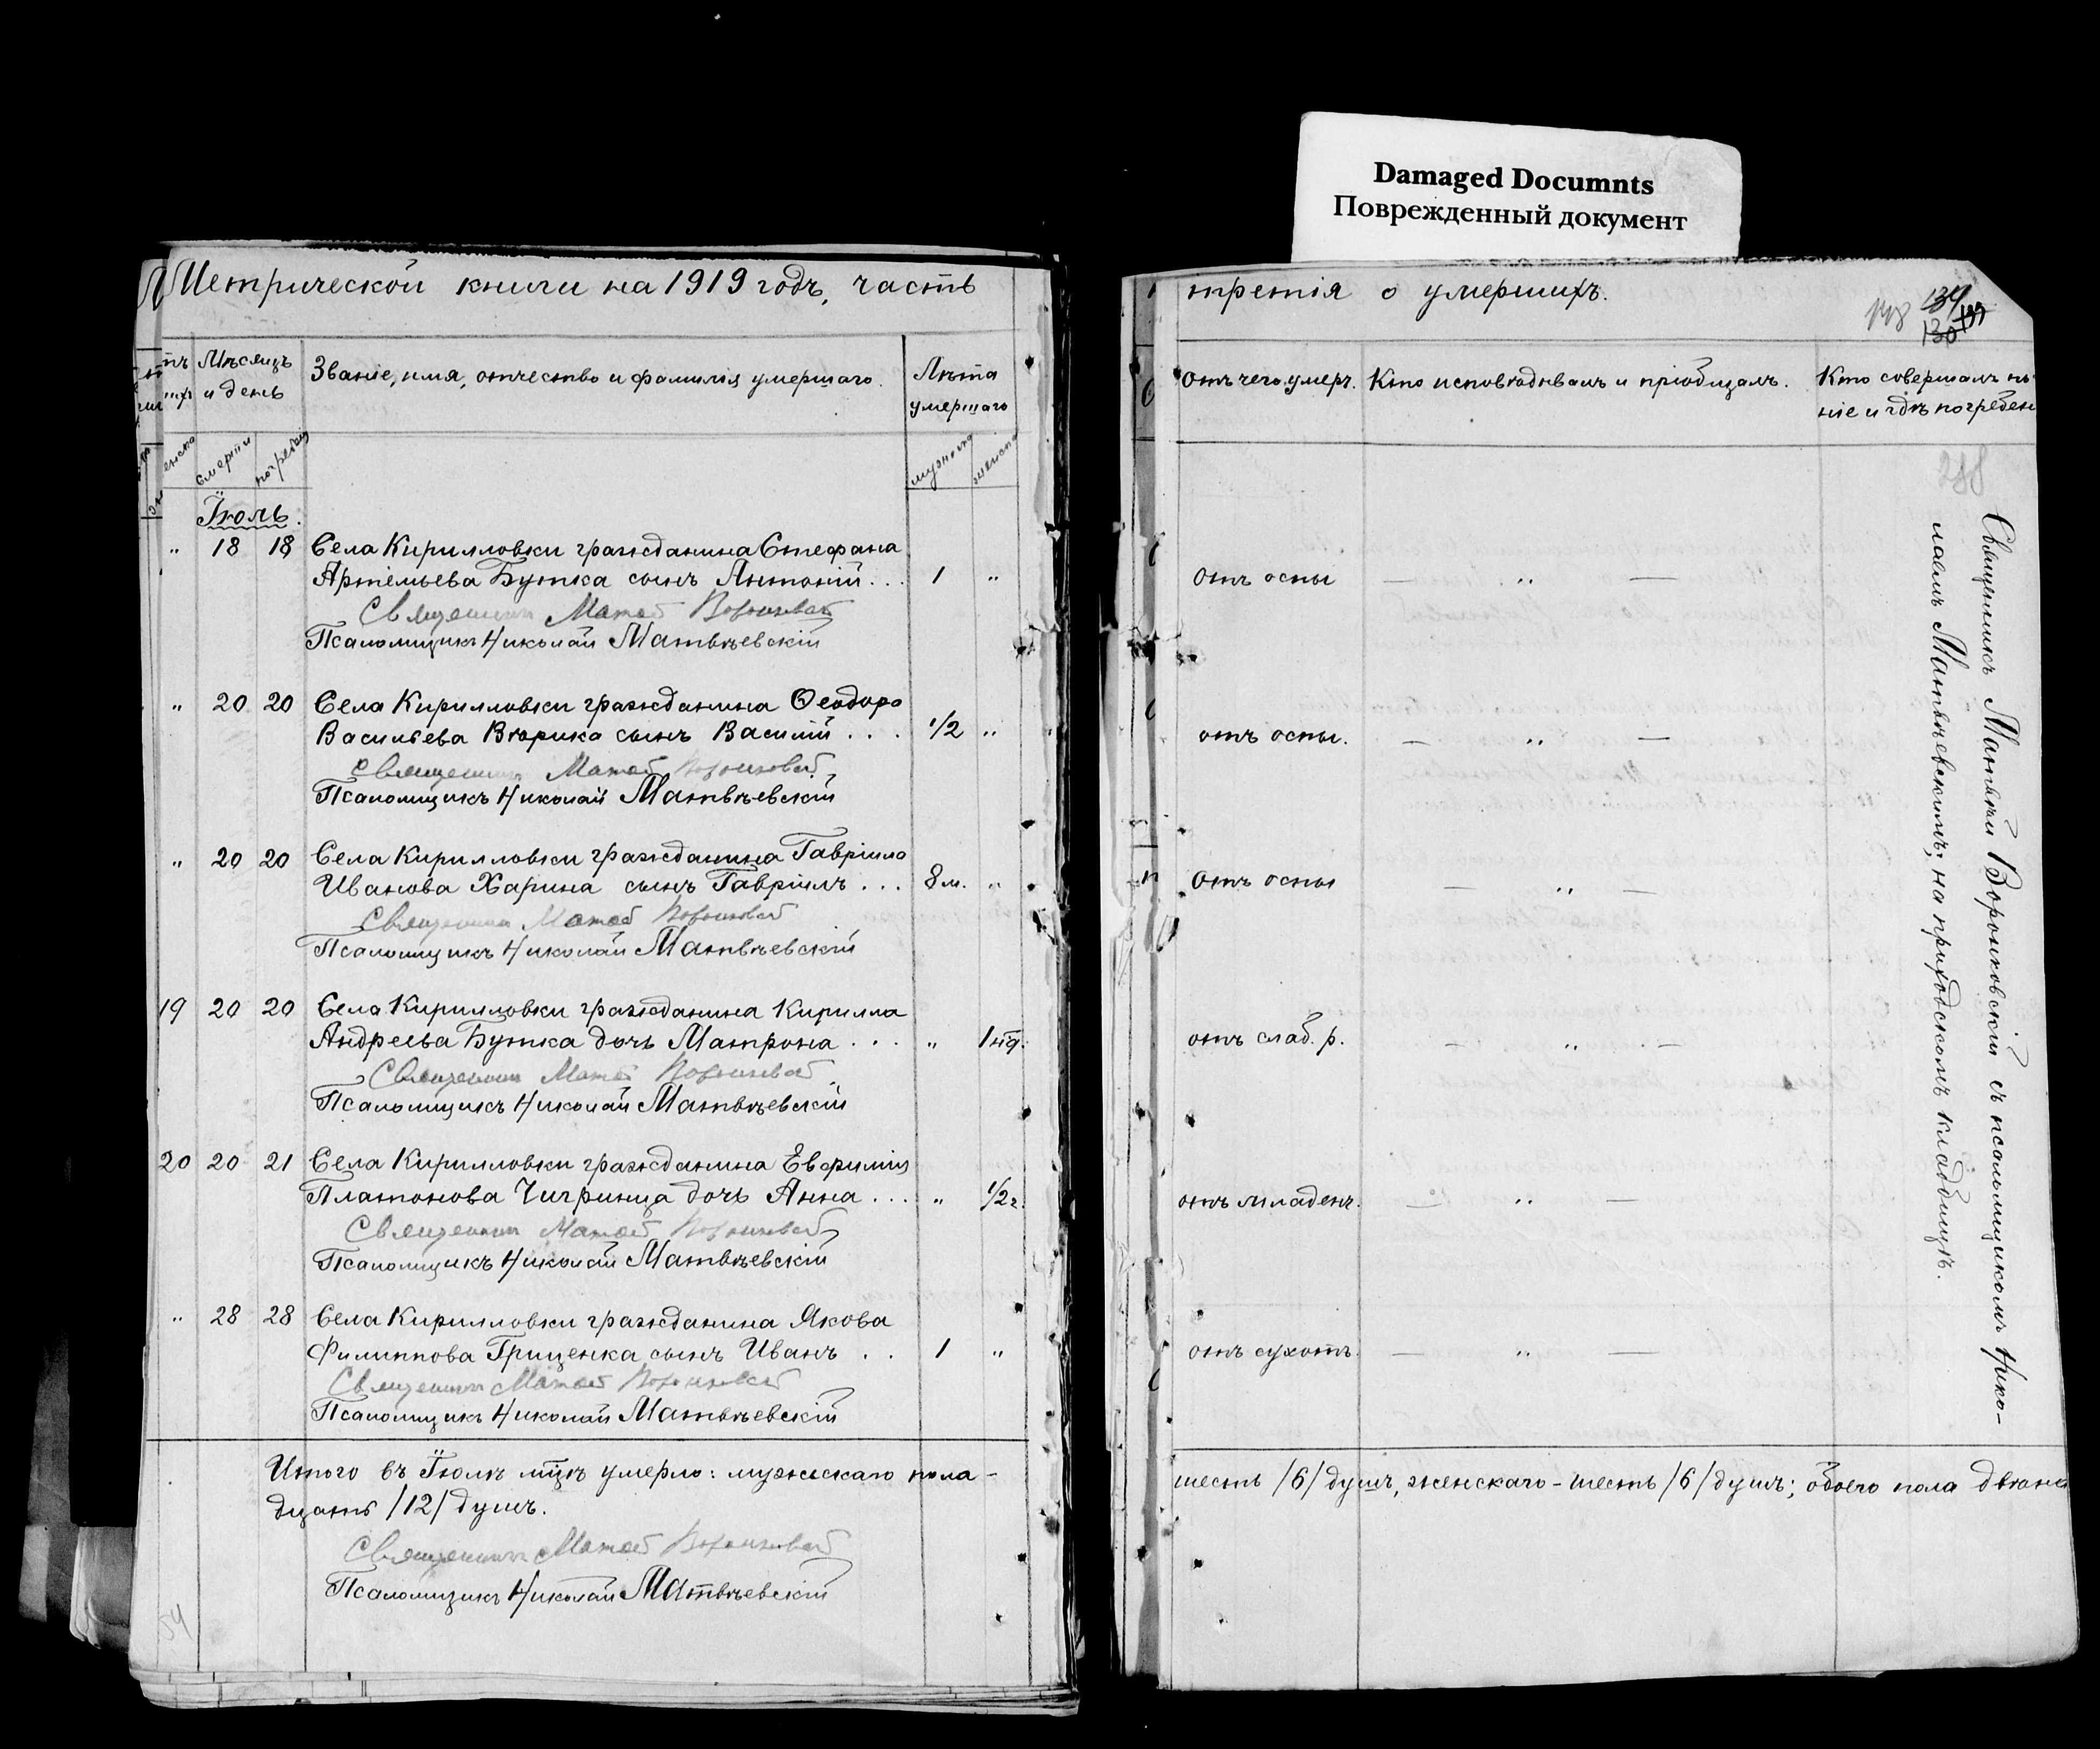 Damaged Documnts
Поврежденный документ
Метрической книги на 1919 годъ, часть
Мѣсяцъ и день
Званіе, имя, отчество и фамилія умершаго.
Лѣта умершаго
смерти
погребен
мужеска
женска
Іюль.
" 18 18 Села Кирилловки гражданина Стефана
Артемьева Бутка сынъ Антоній . . 1 "
Священникъ Матѳей Воронковскій
Псаломщикъ Николай Матвѣевскій
" 20 20 Села Кирилловки гражданина Ѳеодора
Васильева Вторика сынъ Василій . . . 1/2 "
Священникъ Матѳей Воронковскій
Псаломщикъ Николай Матвѣевскій
" 20 20 Села Кирилловки гражданина Гавріила
Иванова Харина сынъ Гавріилъ . . . 8 м. "
Священникъ Матѳей Воронковскій
Псаломщикъ Николай Матвѣевскій
19 20 20 Села Кирилловки гражданина Кирилла
Андреева Бутка дочь Матрона . . . " 1 нд.
Священникъ Матѳей Воронковскій
Псаломщикъ Николай Матвѣевскій
20 20 21 Села Кирилловки гражданина Евфимія
Платонова Чигринца дочь Анна . . . " 1/2 г.
Священникъ Матѳей Воронковскій
Псаломщикъ Николай Матвѣевскій
" 28 28 Села Кирилловки гражданина Якова
Филиппова Гриценка сынъ Иванъ . . 1 "
Священникъ Матѳей Воронковскій
Псаломщикъ Николай Матвѣевскій
Итого въ Іюлѣ мцѣ умерло: мужескаго пола -
дцать /12/ душъ.
Священникъ Матѳей Воронковскій
Псаломщикъ Николай Матвѣевскій
54
третія о умершихъ.
134
130
Отъ чего умеръ.
Кто исповѣдывалъ и пріобщалъ.
Кто совершалъ по
ніе и гдѣ погребен
288
отъ оспы — " —
отъ оспы. — " —
отъ оспы — " —
отъ слаб. р. — " —
отъ младенч. — " —
отъ сухотъ. — " —
Священникъ Матѳей Воронковскій съ псаломщикомъ Нико-
лаемъ Матвѣевскимъ; на приходскомъ кладбищѣ.
шесть /6/ душъ, женскаго - шесть /6/ душъ; обоего пола двѣна